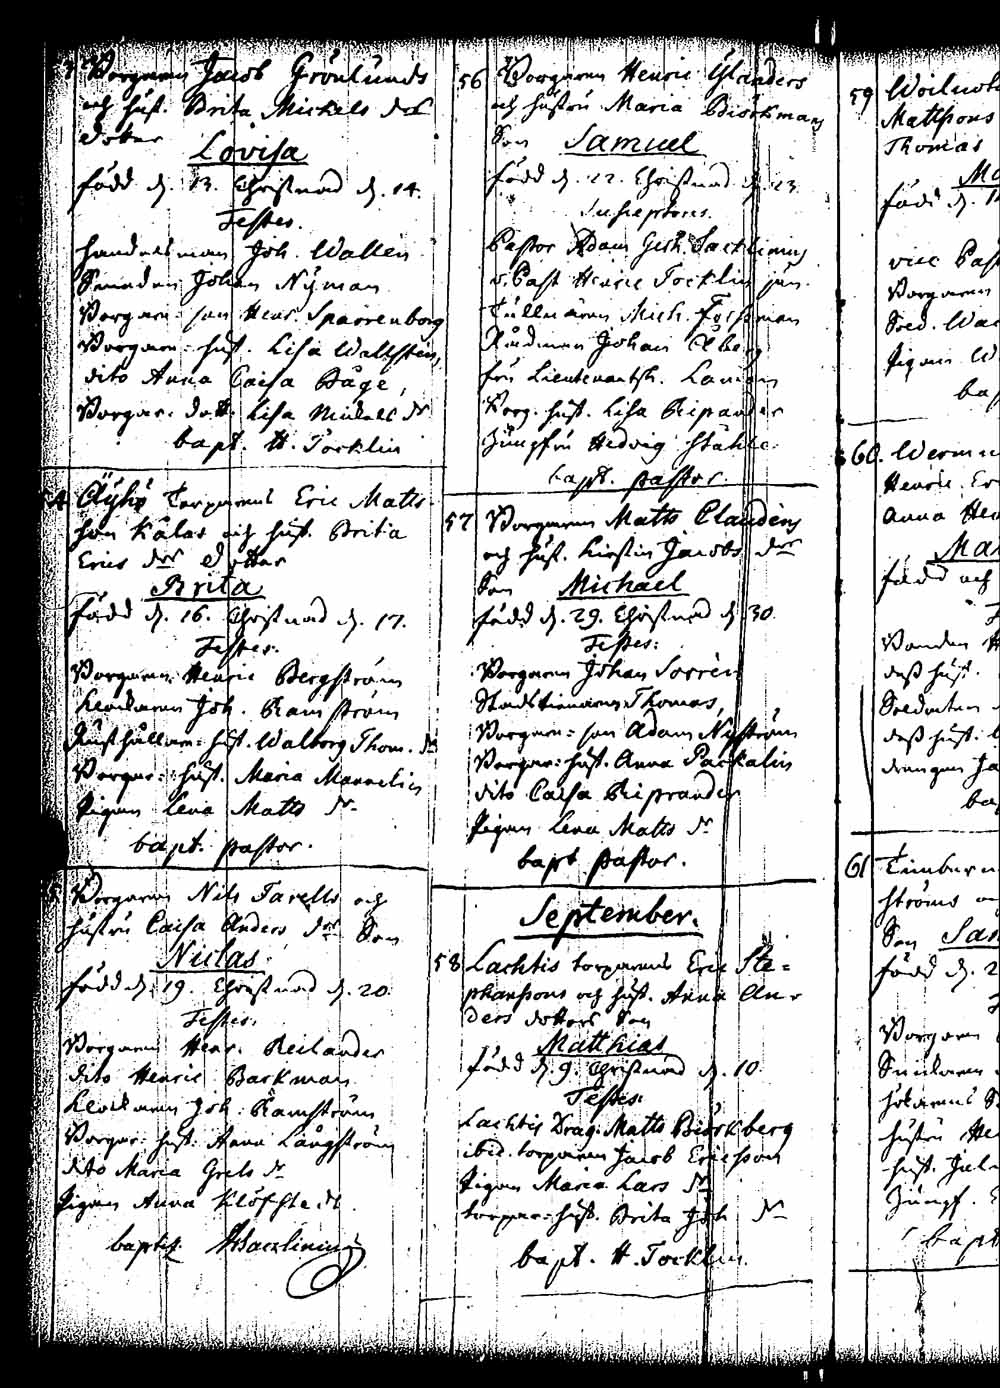 Borgaren Jacob Grönlunds
och hust. Brita Mickels dr
dotter
Lovisa
född d. 13. Christnad d. 14.
Testes.
handelsman Joh. Wallen
Smeden Johan Nyman
Borgare: son Henr. Sparrenborg
Borgare: hust. Lisa Wallsten,
dito Anna Caisa Båge,
Borgar: dott. Lisa Mickels dr
bapt. H. Tocklin
Äyhö Torparens Eric Matts
son Kålas och hust. Brita
Erics dr dotter
Brita
född d. 16. Christnad d. 17.
Testes:
Borgaren Henric Bergström
Klockaren Joh. Ramström
Rusthållare: hust. Walborg Thom. dr
Borgar: hust. Maria Mannelin
Pigan Lena Matts dr
bapt. pastor.
Borgaren Nils Tavells och
hustru Caisa Anders dr Son
Niclas
född d. 19. Christnad d. 20.
Testes:
Borgaren Henr. Reilander
dito Henric Backman
Klockaren Joh: Ramström
Borgar: hust. Anna Långström
dito Maria Grels dr
Pigan Anna Klöfstedt
baptiz.
56 Borgaren Henric Ylanders
och hustru Maria Biörkmans
Son Samuel
född d. 22. Christnad d. 23
Susceptores.
Pastor Adam Gest. Backlinius
v. Past Henric Tocklin jun.
Tullnären Mich. Forsman
Rådman Johan Åberg
fru Lieutenantsk.
Borg. hust. Lisa Reprander
Jungfru Hedvig Ståhle
bapt. pastor.
57 Borgaren Matts Claudens
och hust. Kirstin Jacobs dr
Son Michael
född d. 29. Christnad d. 30
Testes:
Borgaren Johan Sorrén
Stadstienaren Thomas,
Borgare: son Adam Nyström
Borgar: hust. Anna Packalin
dito Caisa Reprander
Pigan Lena Matts dr
bapt pastor.
September.
58 Lachtis torparens Eric Ste=
phanssons och hust. Anna An-
ders dotters Son
Matthias
född d. 9. Christnad d. 10.
Testes:
Lachtis Drag. Matts Biörkberg
ibid. torparen Jacob Ericsson
Pigan Maria Lars dr
torpar: hust. Brita Joh dr
bapt. H. Tocklin.
59
Mattsons
Thomas
Ma
född d.
vice Past
Borgaren
Sold. Wa
Pigan W
bap
60.
Henric Er
Anna Hen
Ma
född och
dess hust.
Soldaten
dess hust.
drengen Ja
ba
61 Timberm
ströms
Son Sam
född d. 2
Borgaren
hustru He
hust.
Jungf.
bapt